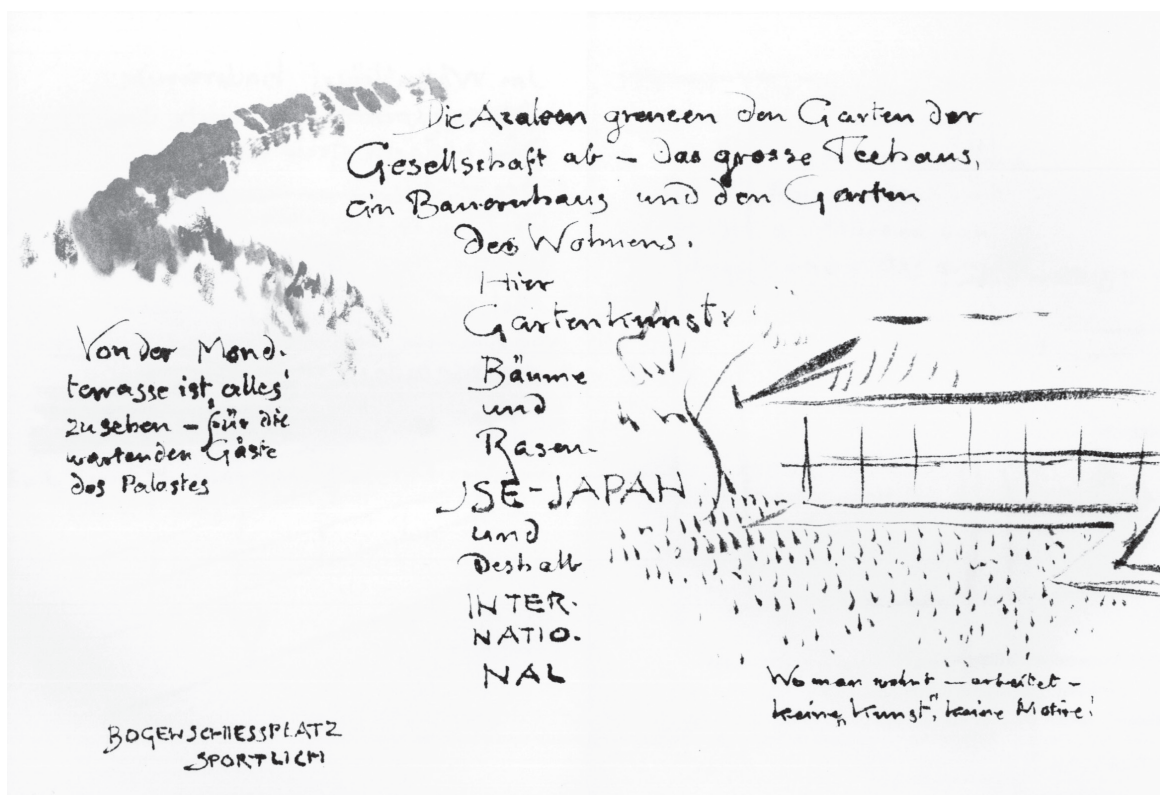 Die Azaleen grenzen den Garten der
Gesellschaft ab – das grosse Teehaus,
ein Bauernhaus und den Garten
des Wohnens.
Hier
Gartenkunst:
Bäume
und
Rasen –
JSE-JAPAN
und
Deshalb
INTER-
NATIO-
NAL
Von der Mond-
terrasse ist "alles"
zu sehen – für die
wartenden Gäste
des Palastes
Wo man wohnt – arbeitet –
keine „Kunst", keine Motive!
BOGENSCHIESSPLATZ
SPORTLICH